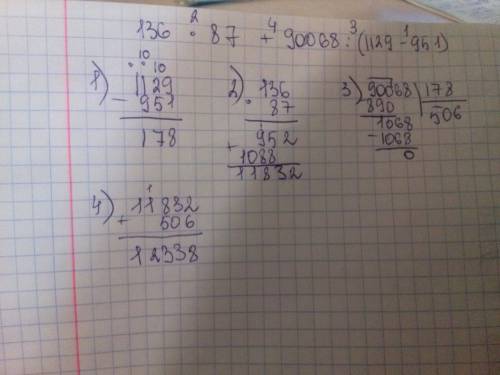 136 · 87 + 90068 : (1129 - 951)
2 4 3 1
1)
10 10
1129
- 951
178
2)
136
· 87
952
+ 1088
11832
3)
90068 | 178
890 506
1068
- 1068
0
4)
1
11832
+ 506
12338